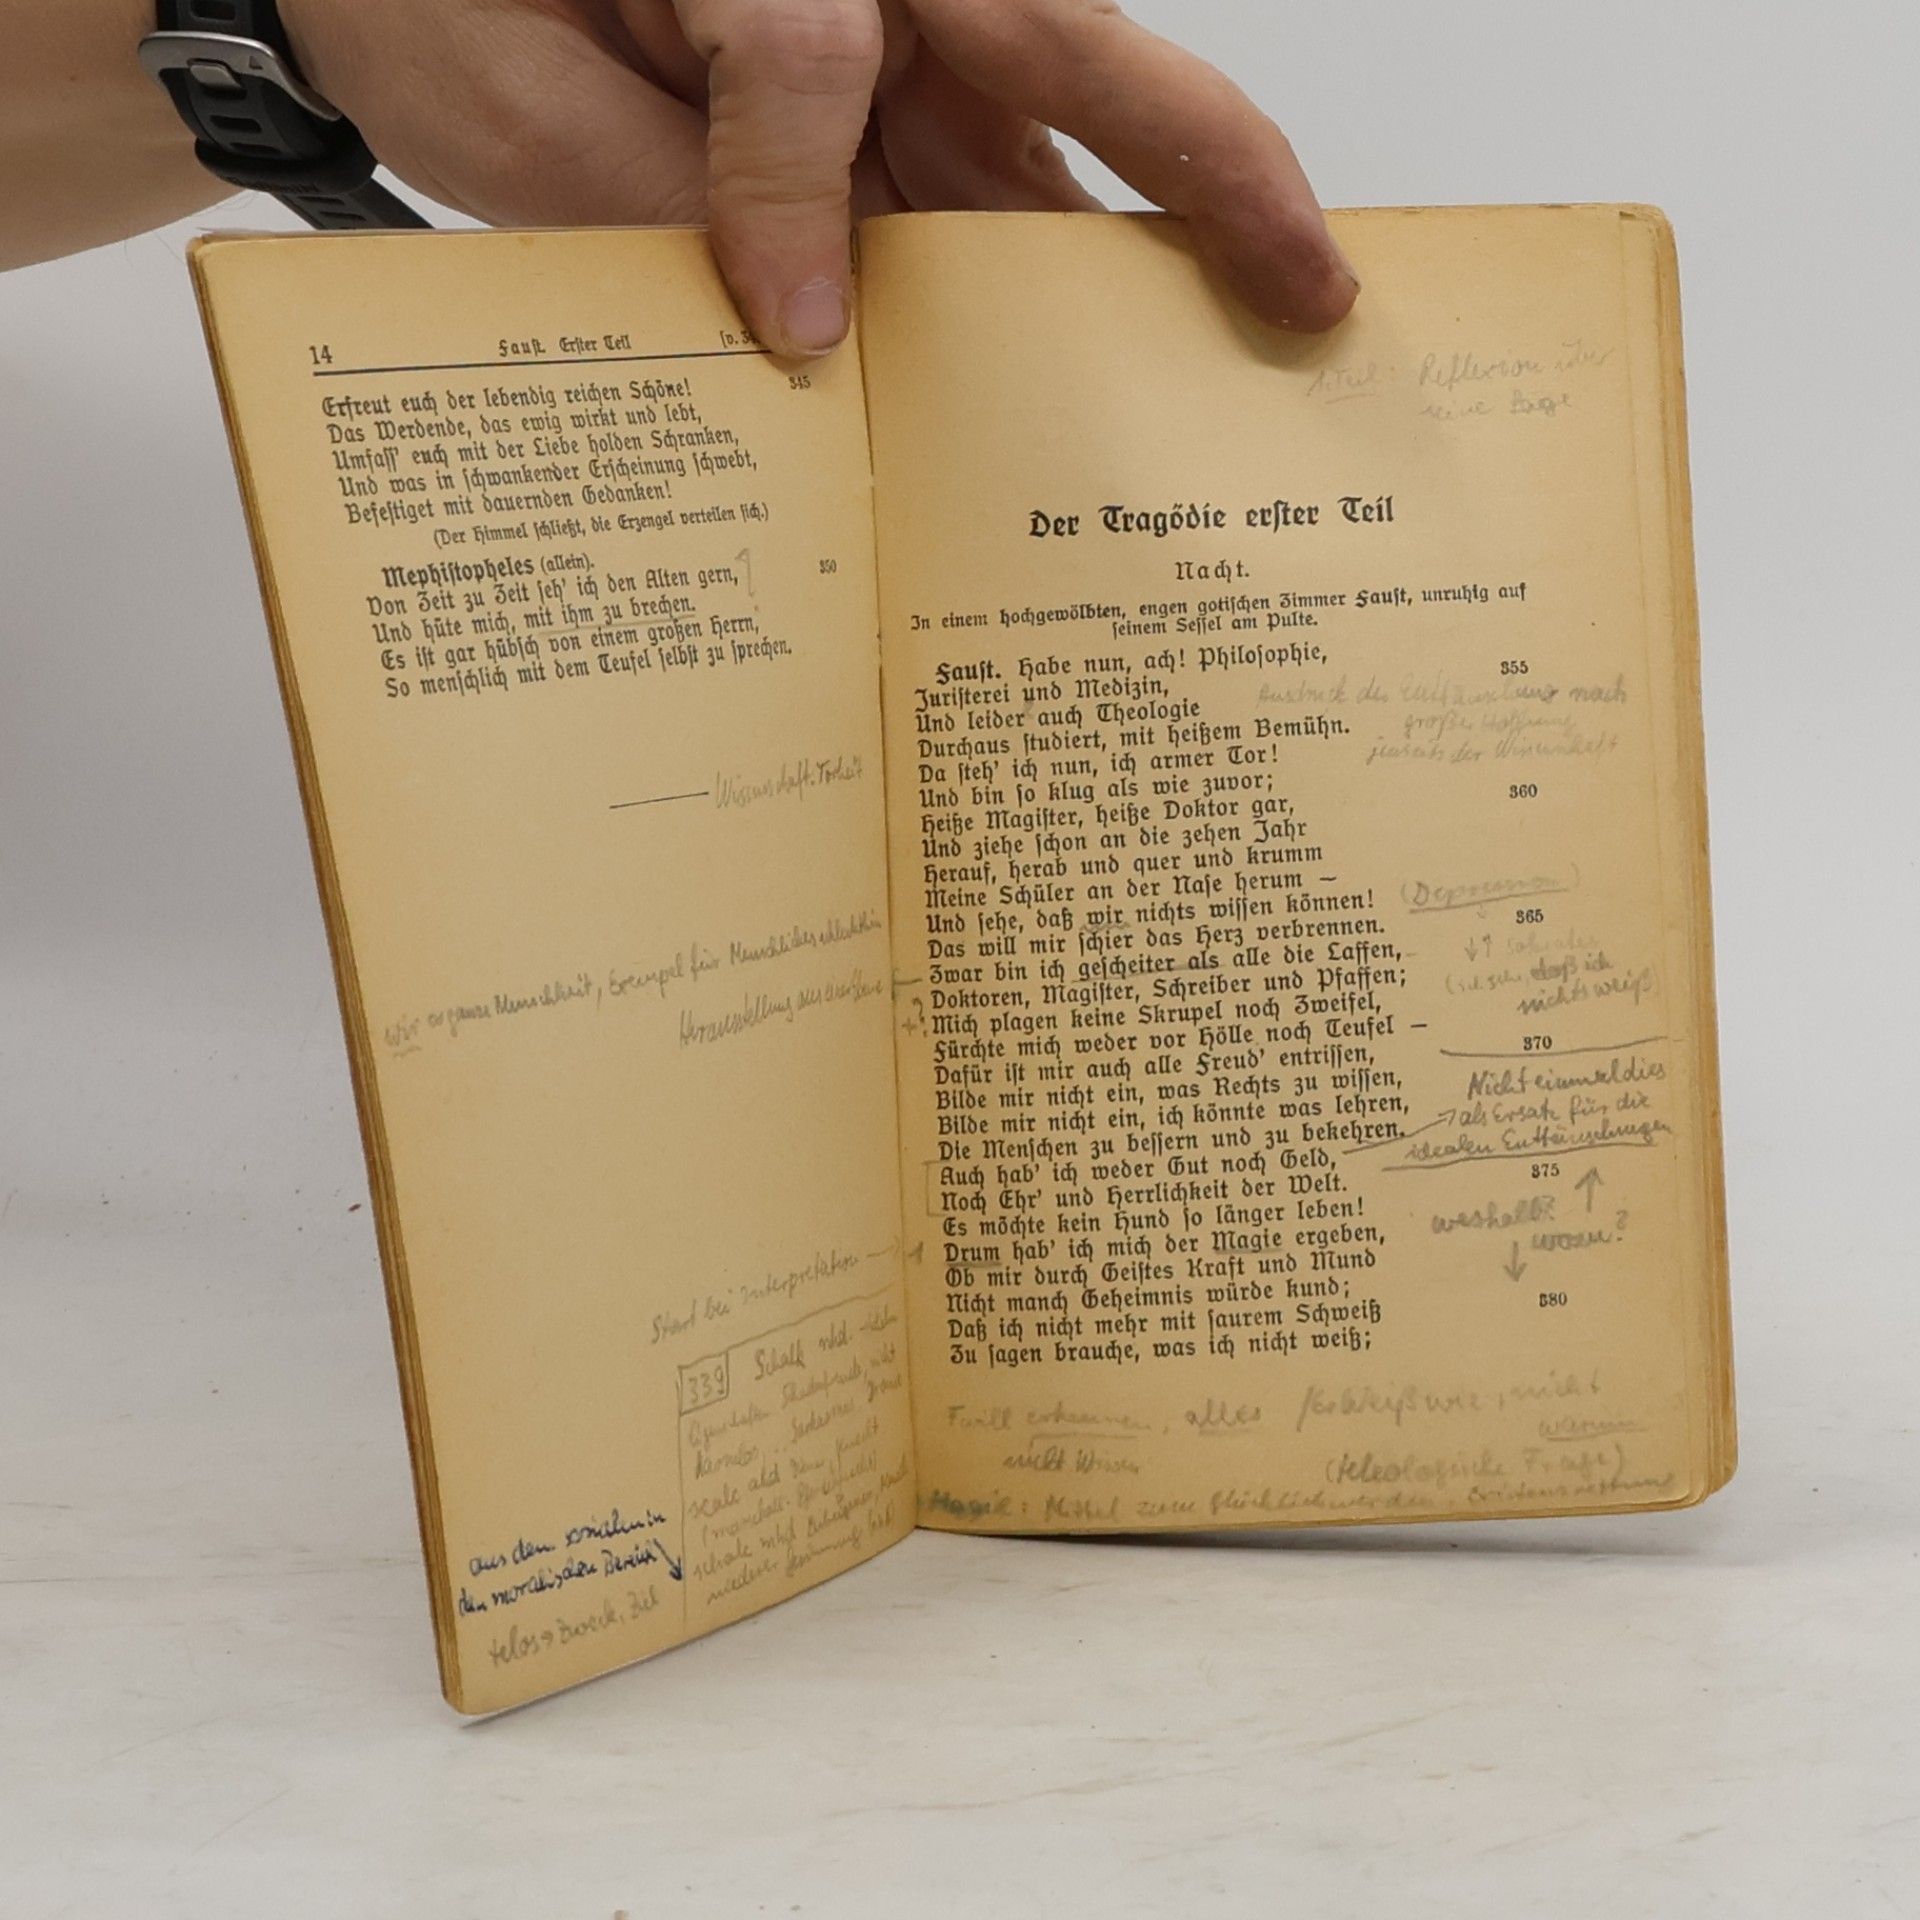 14 Faust. Erster Teil [v. 34
Erfreut euch der lebendig reichen Schöne! 345
Das Werdende, das ewig wirkt und lebt,
Umfass' euch mit der Liebe holden Schranken,
Und was in schwankender Erscheinung schwebt,
Befestiget mit dauernden Gedanken!
(Der Himmel schließt, die Erzengel verteilen sich.)
Mephistopheles (allein).
Von Zeit zu Zeit seh' ich den Alten gern, 350
Und hüte mich, mit ihm zu brechen.
Es ist gar hübsch von einem großen Herrn,
So menschlich mit dem Teufel selbst zu sprechen.
Wissenschaft: Torheit
wir ganze Menschheit, Exempel für Menschliches schlechthin
Herausstellung aus
Start bei Interpretation
339 Schalk nhd.
aus dem sozialen in
den moralischen Bereich
telos → Zweck, Ziel
1. Teil: Reflexion über
seine Lage
Der Tragödie erster Teil
Nacht.
In einem hochgewölbten, engen gotischen Zimmer Faust, unruhig auf
seinem Sessel am Pulte.
Faust. Habe nun, ach! Philosophie, 355
Juristerei und Medizin,
Und leider auch Theologie
Durchaus studiert, mit heißem Bemühn.
Da steh' ich nun, ich armer Tor!
Und bin so klug als wie zuvor; 360
Heiße Magister, heiße Doktor gar,
Und ziehe schon an die zehen Jahr
Herauf, herab und quer und krumm
Meine Schüler an der Nase herum –
Und sehe, daß wir nichts wissen können! 365
Das will mir schier das Herz verbrennen.
Zwar bin ich gescheiter als alle die Laffen,
Doktoren, Magister, Schreiber und Pfaffen;
Mich plagen keine Skrupel noch Zweifel,
Fürchte mich weder vor Hölle noch Teufel – 370
Dafür ist mir auch alle Freud' entrissen,
Bilde mir nicht ein, was Rechts zu wissen,
Bilde mir nicht ein, ich könnte was lehren,
Die Menschen zu bessern und zu bekehren.
Auch hab' ich weder Gut noch Geld, 375
Noch Ehr' und Herrlichkeit der Welt.
Es möchte kein Hund so länger leben!
Drum hab' ich mich der Magie ergeben,
Ob mir durch Geistes Kraft und Mund
Nicht manch Geheimnis würde kund; 380
Daß ich nicht mehr mit saurem Schweiß
Zu sagen brauche, was ich nicht weiß;
Ausdruck der Enttäuschung nach
großer Hoffnung
jenseits der Wissenschaft
(Depression)
Sokrates
daß ich
nichts weiß)
Nicht einmal dies
als Ersatz für die
idealen Enttäuschungen
weshalb?
wozu?
F will erkennen, alles weiß wie, nicht
warum
nicht Wissen
(teleologische Frage)
Magie: Mittel zum Glücklichwerden, Existenz